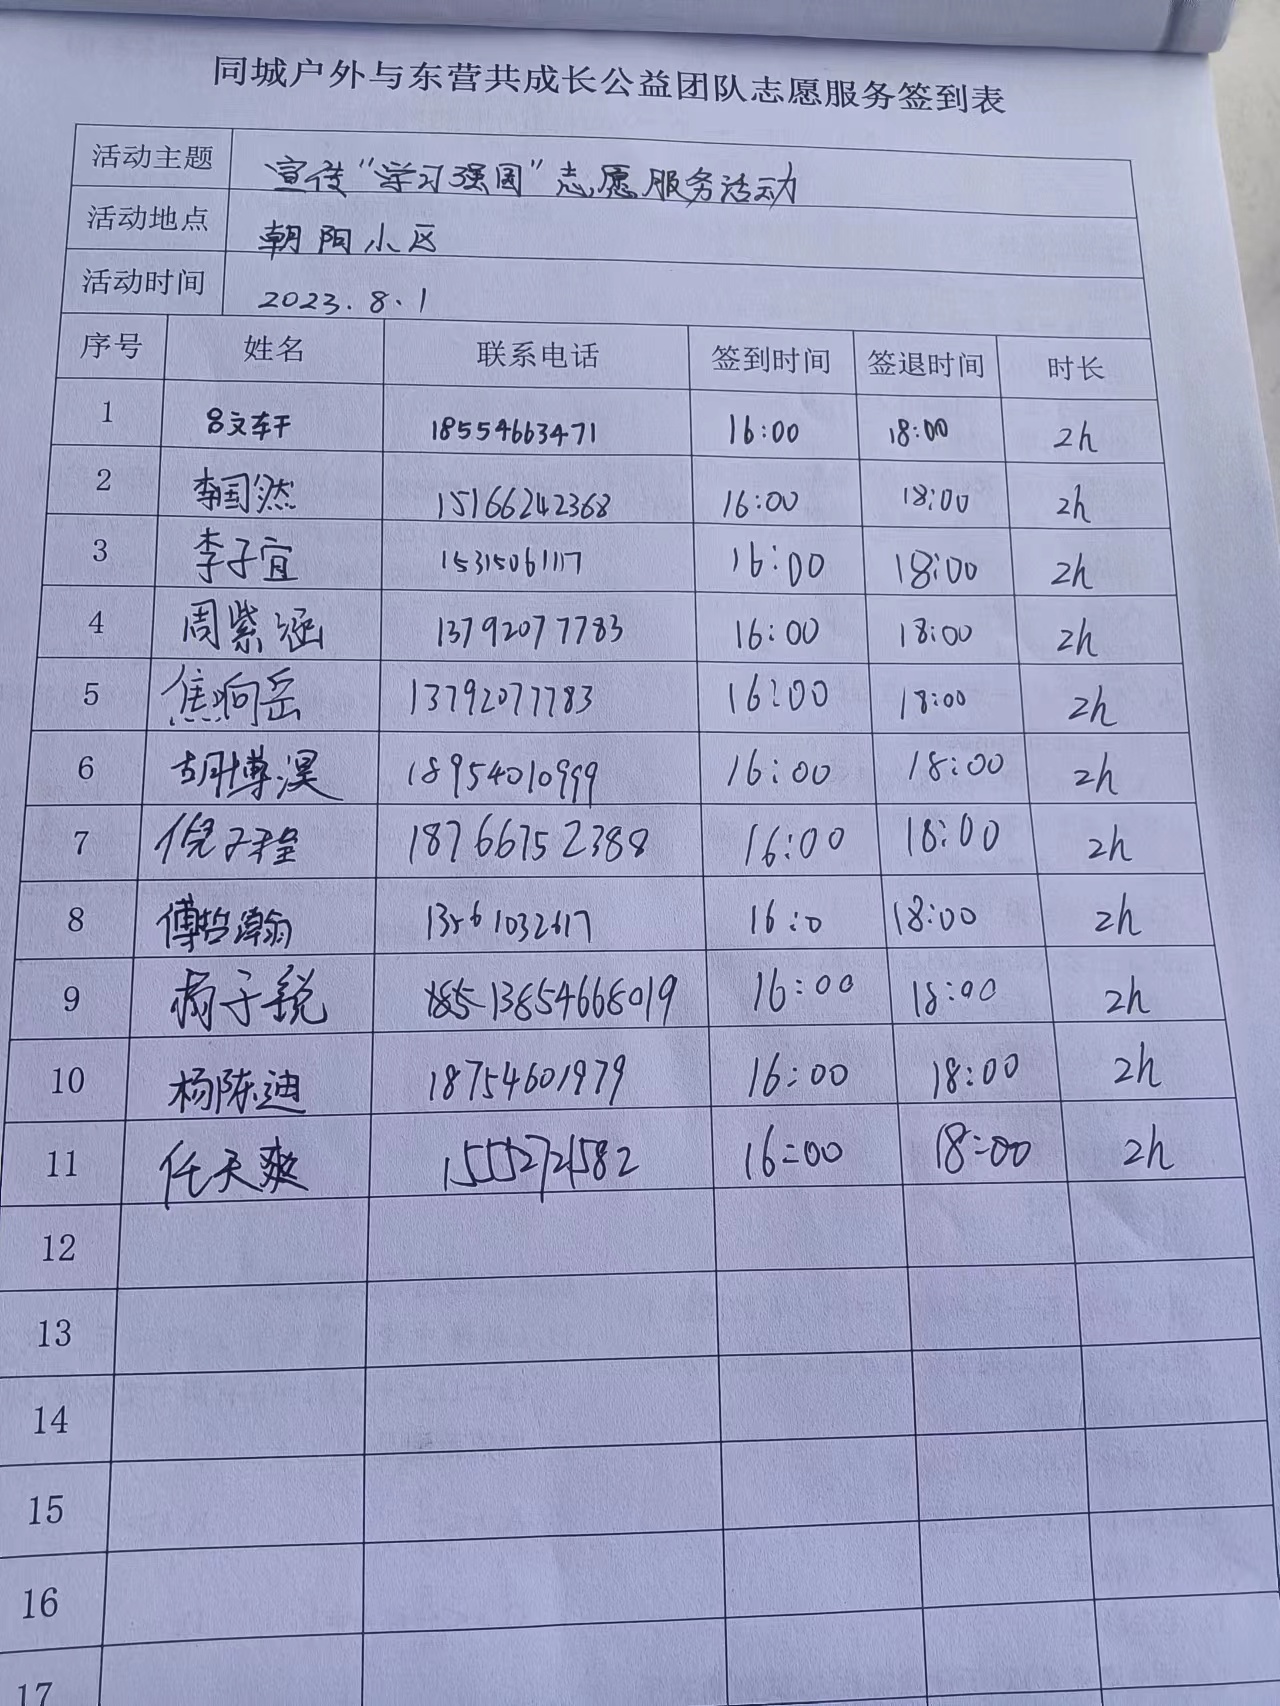 同城户外与东营共成长公益团队志愿服务签到表
活动主题 宣传“学习强国”志愿服务活动
活动地点 朝阳小区
活动时间 2023.8.1
序号 姓名 联系电话 签到时间 签退时间 时长
1 吕文轩 18554663471 16:00 18:00 2h
2 李国然 15166242368 16:00 18:00 2h
3 李子宜 15315061117 16:00 18:00 2h
4 周紫涵 13792077783 16:00 18:00 2h
5 焦响岳 13792077783 16:00 18:00 2h
6 胡博淏 18954010999 16:00 18:00 2h
7 倪子程 18766752388 16:00 18:00 2h
8 傅哲瀚 13561032617 16:0 18:00 2h
9 子锐 13854668019 16:00 18:00 2h
10 杨陈迪 18754601979 16:00 18:00 2h
11 任天爽 16=00 18=00 2h
12
13
14
15
16
17